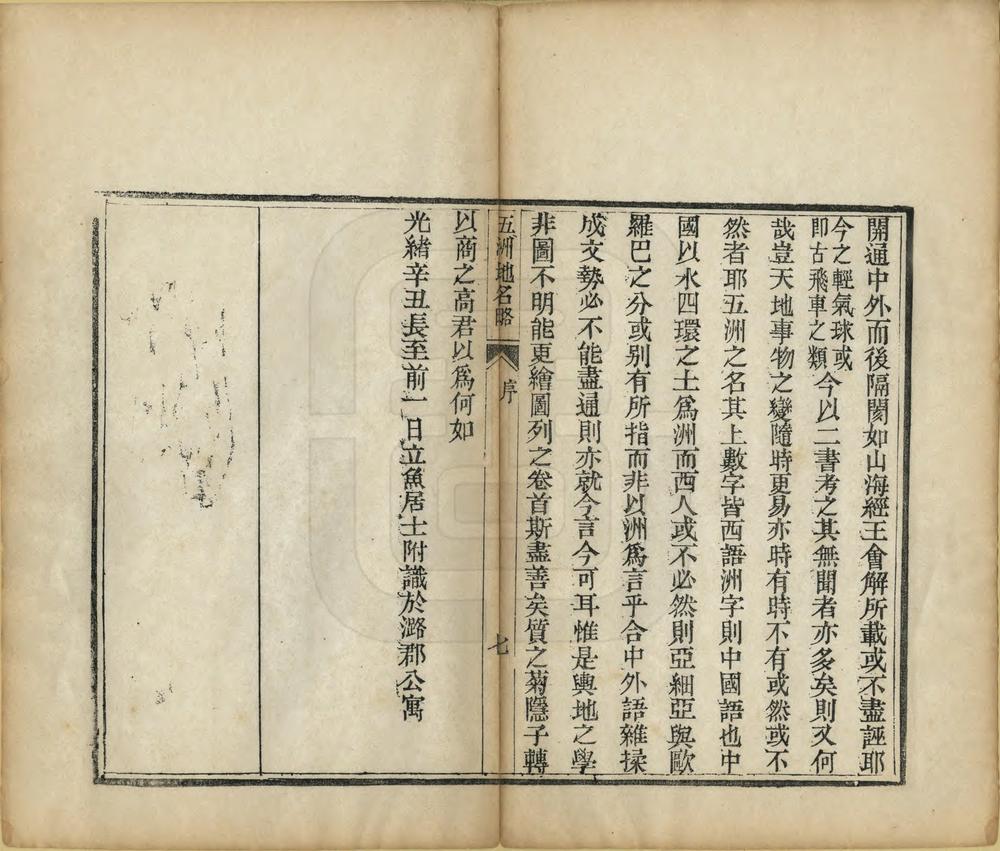 開通中外而後隔閡如山海經王會解所載或不盡誣耶
今之輕氣球或
即古飛車之類
今以二書考之其無聞者亦多矣則又何
哉豈天地事物之變隨時更易亦時有時不有或然或不
然者耶五洲之名其上數字皆西語洲字則中國語也中
國以水四環之土爲洲而西人或不必然則亞細亞與歐
羅巴之分或别有所指而非以洲爲言乎合中外語雜揉
成文勢必不能盡通則亦就今言今可耳惟是輿地之學
非圖不明能更繪圖列之卷首斯盡善矣質之菊隱子轉
五洲地名略
序
七
以商之高君以爲何如
光緒辛丑長至前一日立魚居士附識於潞郡公寓